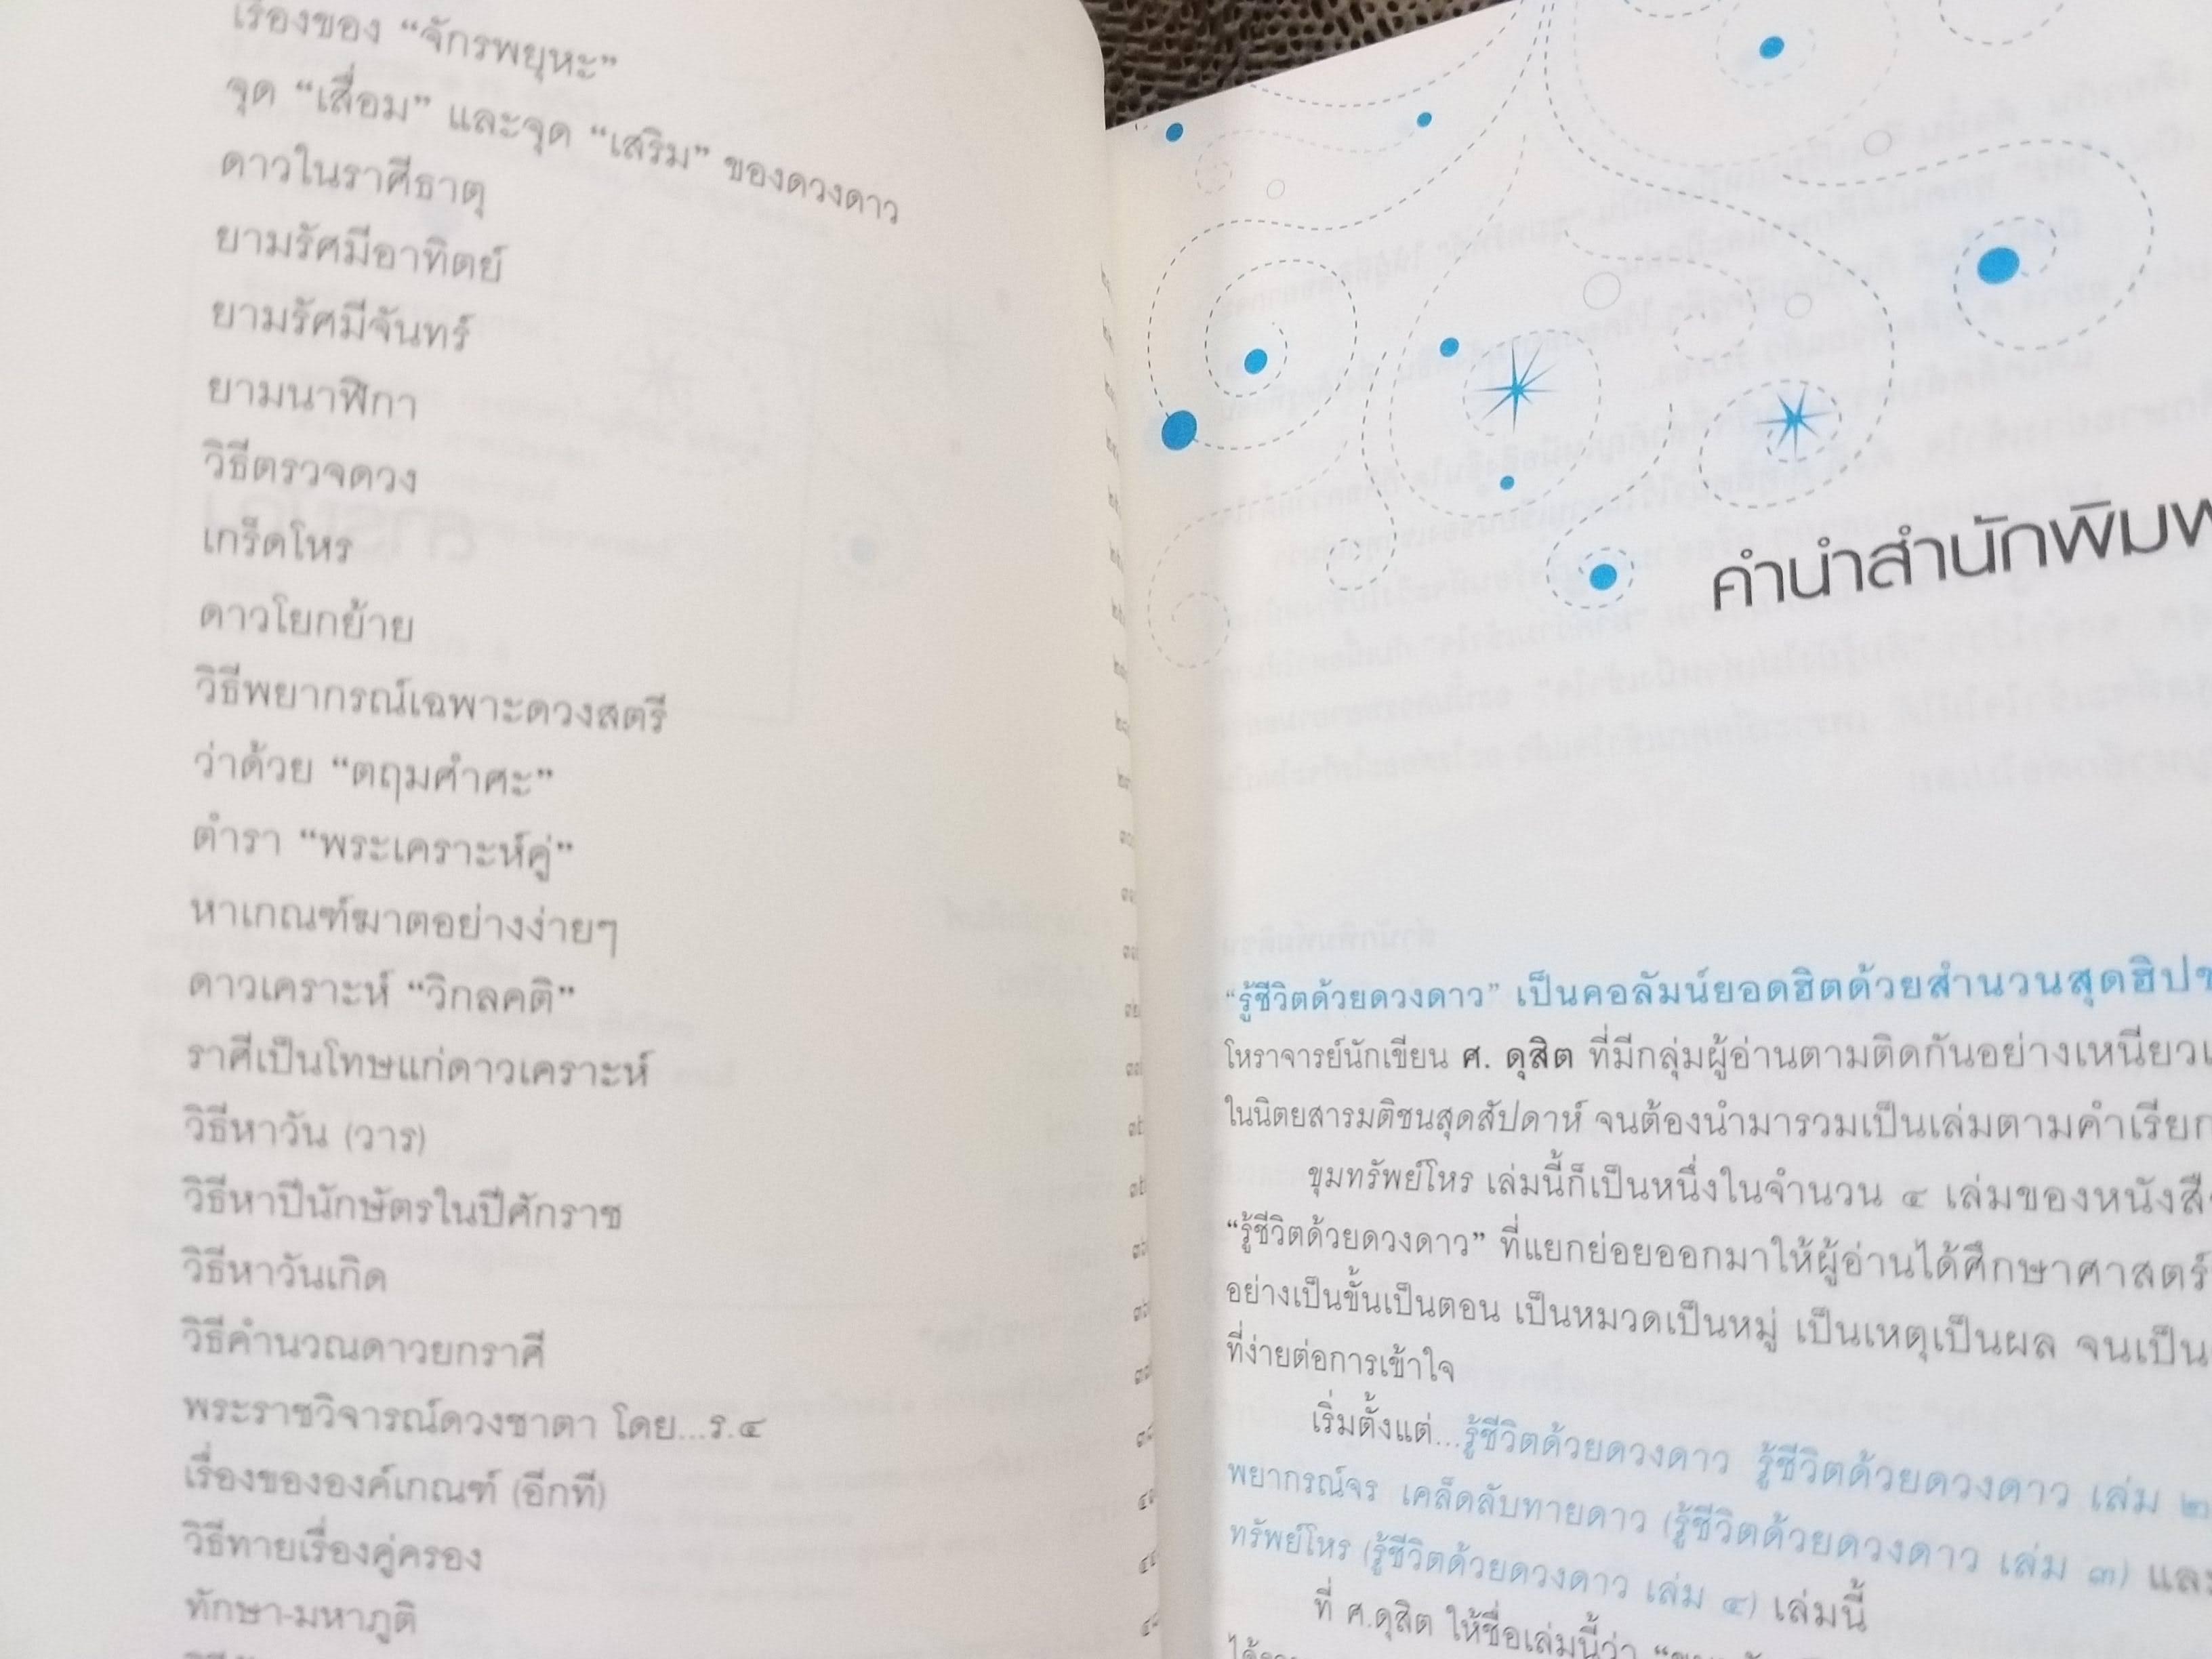 เรื่องของ “จักรพยุหะ”
จุด “เสื่อม” และจุด “เสริม” ของดวงดาว
ดาวในราศีธาตุ
ยามรัศมีอาทิตย์
ยามรัศมีจันทร์
ยามนาฬิกา
วิธีตรวจดวง
เกร็ดโหร
ดาวโยกย้าย
วิธีพยากรณ์เฉพาะดวงสตรี
ว่าด้วย “ตฤมคำศะ”
ตำรา “พระเคราะห์คู่”
หาเกณฑ์ฆาตอย่างง่ายๆ
ดาวเคราะห์ “วิกลคติ”
ราศีเป็นโทษแก่ดาวเคราะห์
วิธีหาวัน (วาร)
วิธีหาปีนักษัตรในปีศักราช
วิธีหาวันเกิด
วิธีคำนวณดาวยกราศี
พระราชวิจารณ์ดวงชาตา โดย...ร.๔
เรื่องขององค์เกณฑ์ (อีกที)
วิธีทายเรื่องคู่ครอง
ทักษา-มหาภูติ
คำนำสำนักพิมพ
“รู้ชีวิตด้วยดวงดาว” เป็นคอลัมน์ยอดฮิตด้วยสำนวนสุดฮิป
โหราจารย์นักเขียน ศ. ดุสิต ที่มีกลุ่มผู้อ่านตามติดกันอย่างเหนียว
ในนิตยสารมติชนสุดสัปดาห์ จนต้องนำมารวมเป็นเล่มตามคำเรียก
ขุมทรัพย์โหร เล่มนี้ก็เป็นหนึ่งในจำนวน ๔ เล่มของหนังสื
“รู้ชีวิตด้วยดวงดาว” ที่แยกย่อยออกมาให้ผู้อ่านได้ศึกษาศาสตร์
อย่างเป็นขั้นเป็นตอน เป็นหมวดเป็นหมู่ เป็นเหตุเป็นผล จนเป็น
ที่ง่ายต่อการเข้าใจ
เริ่มตั้งแต่...รู้ชีวิตด้วยดวงดาว รู้ชีวิตด้วยดวงดาว เล่ม ๒
พยากรณ์จร เคล็ดลับทายดาว (รู้ชีวิตด้วยดวงดาว เล่ม ๓) และ
ทรัพย์โหร (รู้ชีวิตด้วยดวงดาว เล่ม ๔) เล่มนี้
ที่ ศ.ดุสิต ให้ชื่อเล่มนี้ว่า